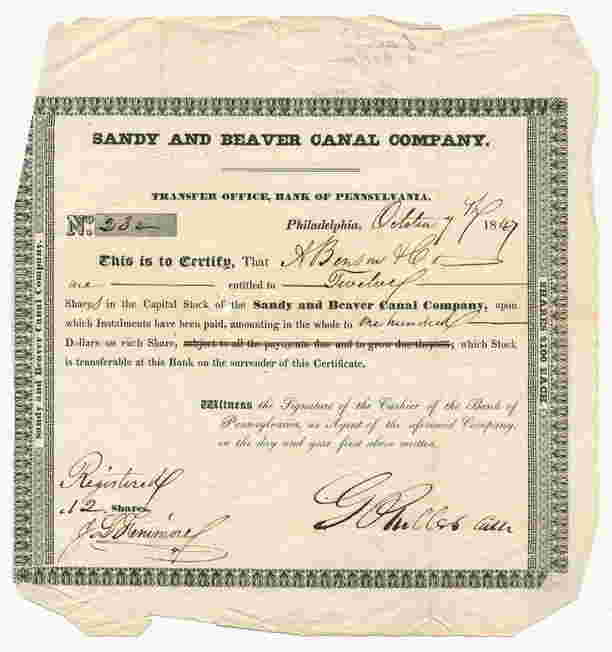 SANDY AND BEAVER CANAL COMPANY.
TRANSFER OFFICE, BANK OF PENNSYLVANIA.
No. 232
Philadelphia, October 7th 1847
This is to Certify, That A Benson & Co
are entitled to Twelve
Shares in the Capital Stock of the Sandy and Beaver Canal Company, upon
which Instalments have been paid, amounting in the whole to One hundred
Dollars on each Share, subject to all the payments due and to grow due thereon; which Stock
is transferable at this Bank on the surrender of this Certificate.
Witness the Signature of the Cashier of the Bank of
Pennsylvania, as Agent of the aforesaid Company,
on the day and year first above written.
Registered
12 Shares.
Sandy and Beaver Canal Company.
SHARES $100 EACH